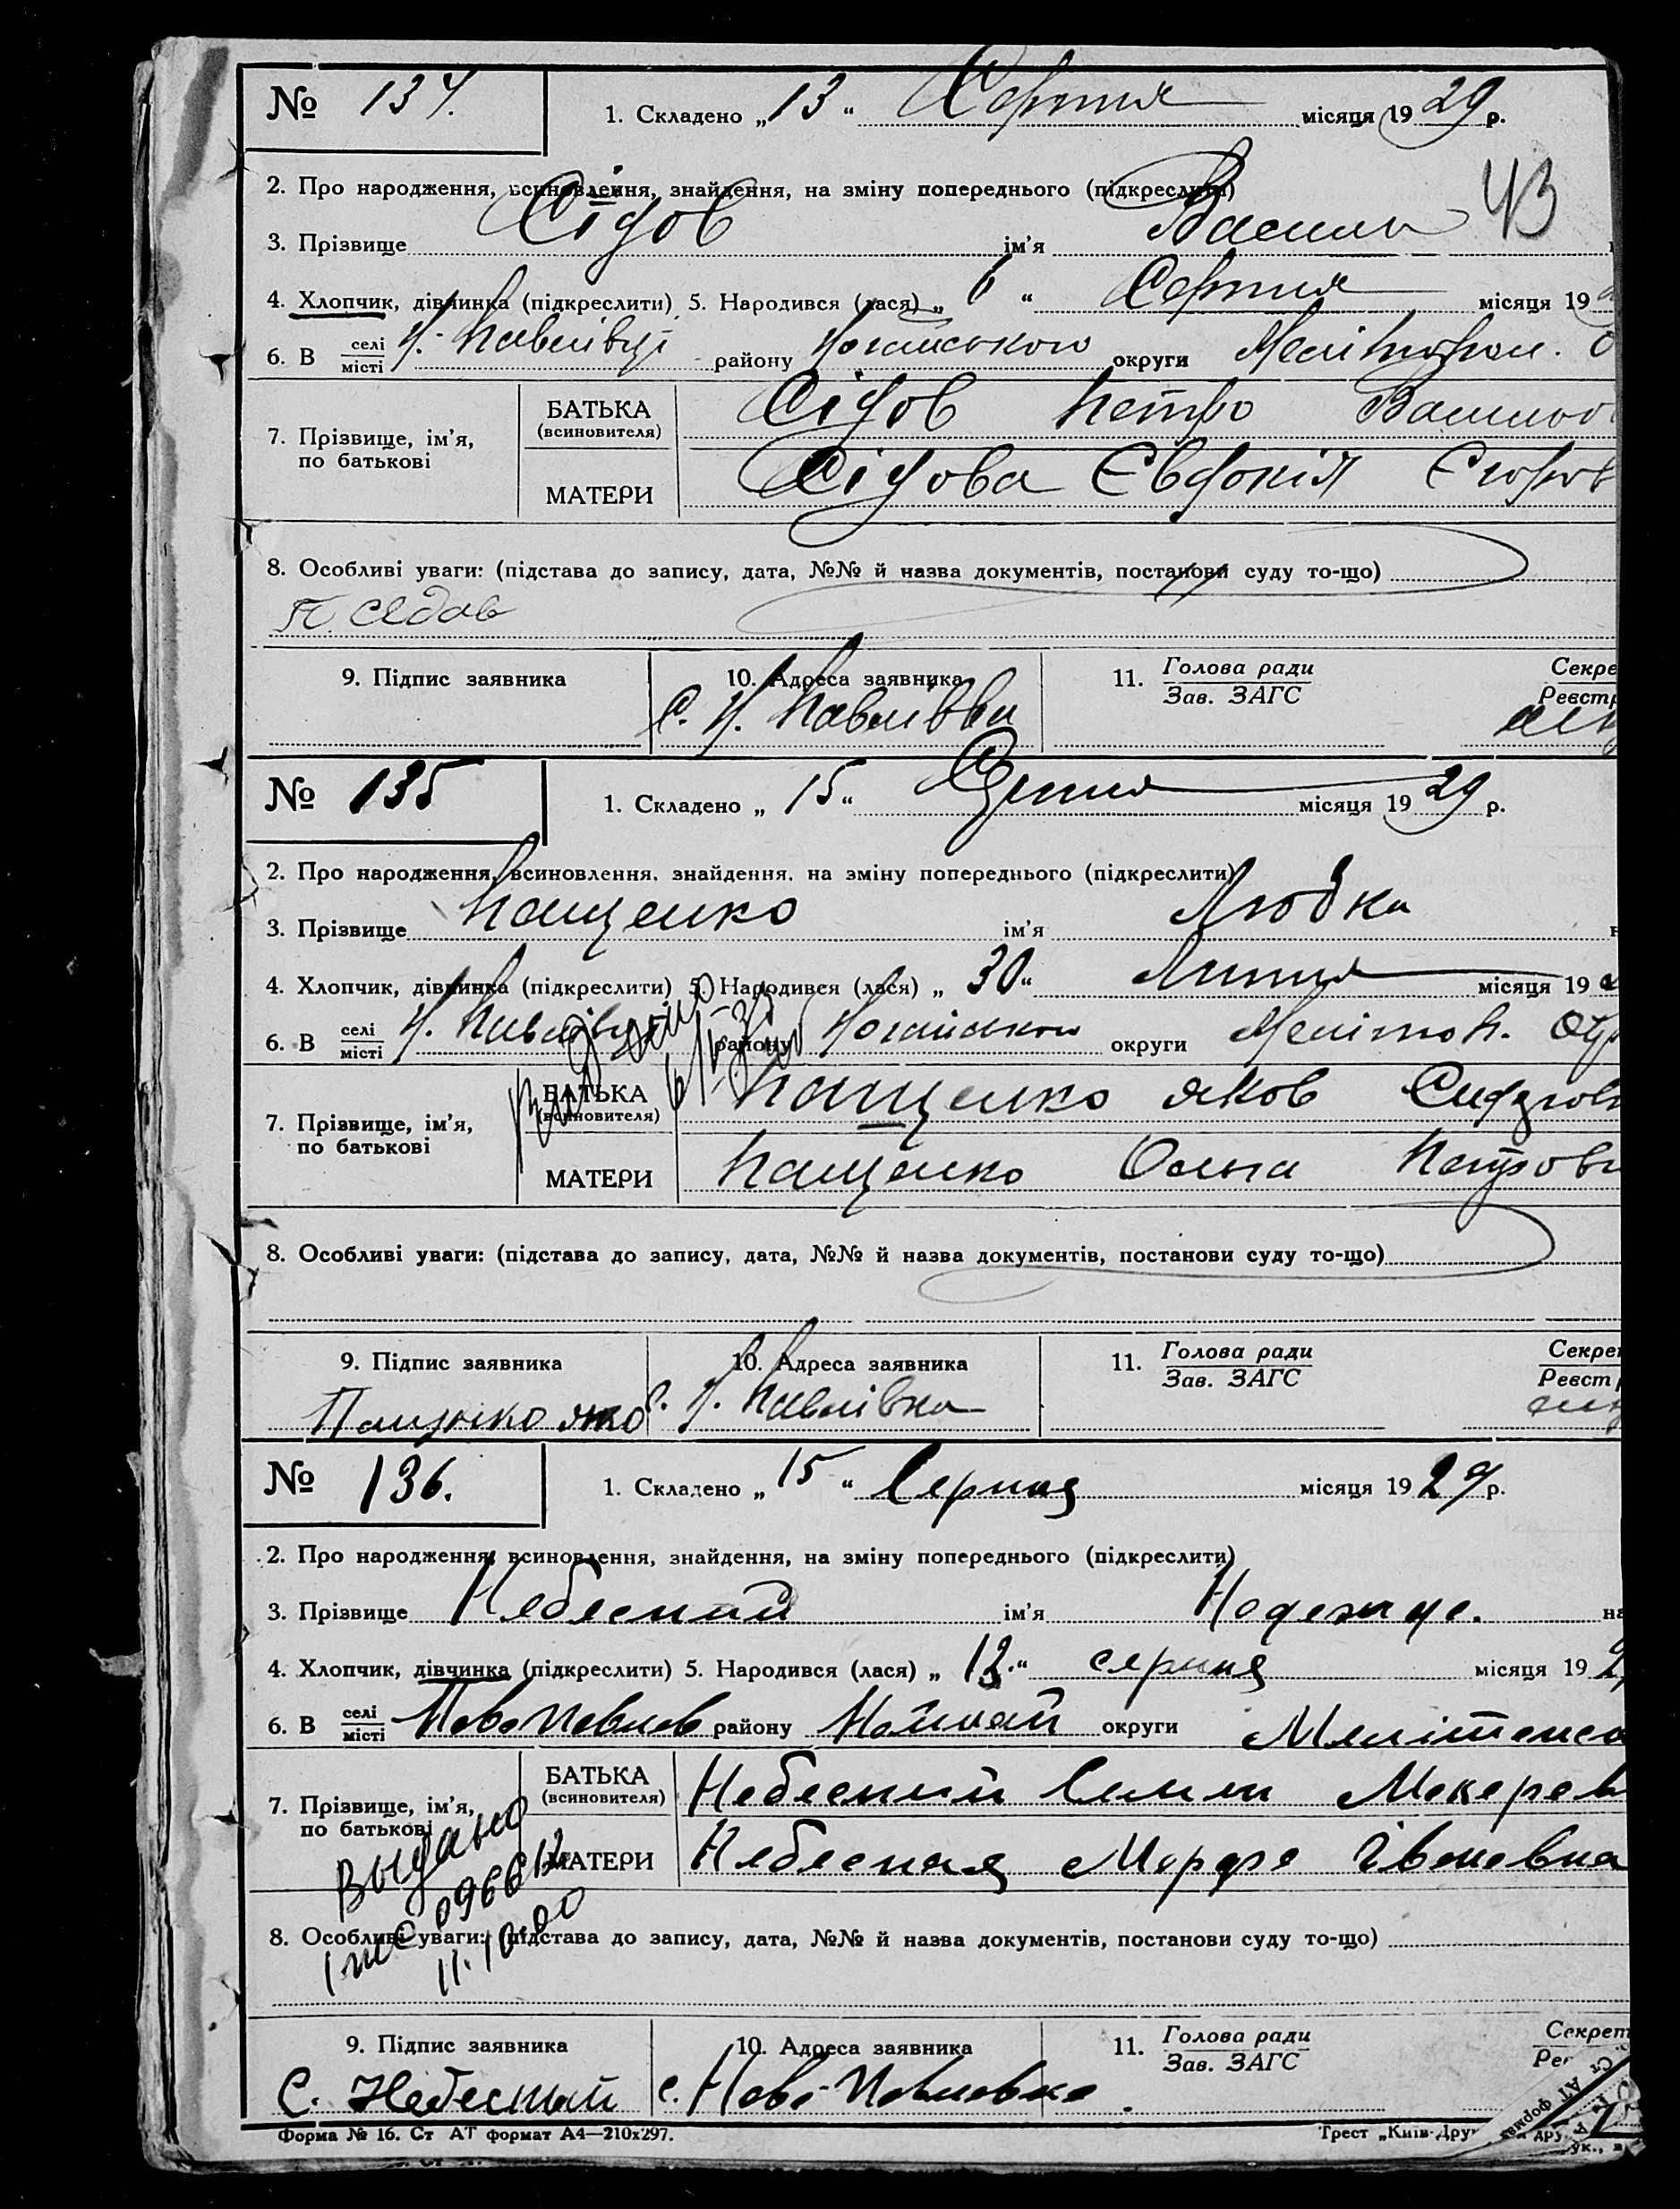 № 134. 1. Складено „13“ Серпня місяця 1929 р.
43
2. Про народження, всиновлення, знайдення, на зміну попереднього (підкреслити)
3. Прізвище Сідов ім'я Василь
4. Хлопчик, дівчинка (підкреслити) 5. Народився (лася) „6“ Серпня місяця 19
6. В селі місті Н. Павлівці району Ногайського округи Мелітопол.
7. Прізвище, ім'я, по батькові
БАТЬКА (всиновителя) Сідов Петро
МАТЕРИ Сідова Євдокія Єгоров
8. Особливі уваги: (підстава до запису, дата, №№ й назва документів, постанови суду то-що)
П. Седов
9. Підпис заявника 10. Адреса заявника 11. Голова ради Секре
Зав. ЗАГС Реєстр
С. Н. Павлівка
№ 135 1. Складено „15“ Серпня місяця 1929 р.
2. Про народження, всиновлення, знайдення, на зміну попереднього (підкреслити)
3. Прізвище Пащенко ім'я Любка
4. Хлопчик, дівчинка (підкреслити) 5. Народився (лася) „30“ Липня місяця 19
6. В селі місті Н. Павлівці району Ногайського округи Мелітоп. Окр
7. Прізвище, ім'я, по батькові
БАТЬКА (всиновителя) Пащенко Яков
МАТЕРИ Пащенко Ольга Петровн
8. Особливі уваги: (підстава до запису, дата, №№ й назва документів, постанови суду то-що)
9. Підпис заявника 10. Адреса заявника 11. Голова ради Секрет
Зав. ЗАГС Реєстр
Пащенко с. Н. Павлівка
№ 136. 1. Складено „15“ Серпня місяця 1929 р.
2. Про народження, всиновлення, знайдення, на зміну попереднього (підкреслити)
3. Прізвище Небесний ім'я на
4. Хлопчик, дівчинка (підкреслити) 5. Народився (лася) „12.“ серпня місяця 192
6. В селі місті району округи
7. Прізвище, ім'я, по батькові
БАТЬКА (всиновителя) Небесний
МАТЕРИ Небесная
Выдано
8. Особливі уваги: (підстава до запису, дата, №№ й назва документів, постанови суду то-що)
9. Підпис заявника 10. Адреса заявника 11. Голова ради Секрет
Зав. ЗАГС
С. Небесный с. Ново-Павловка
Форма № 16. Ст АТ формат А4—210x297. Трест „Київ-Друк